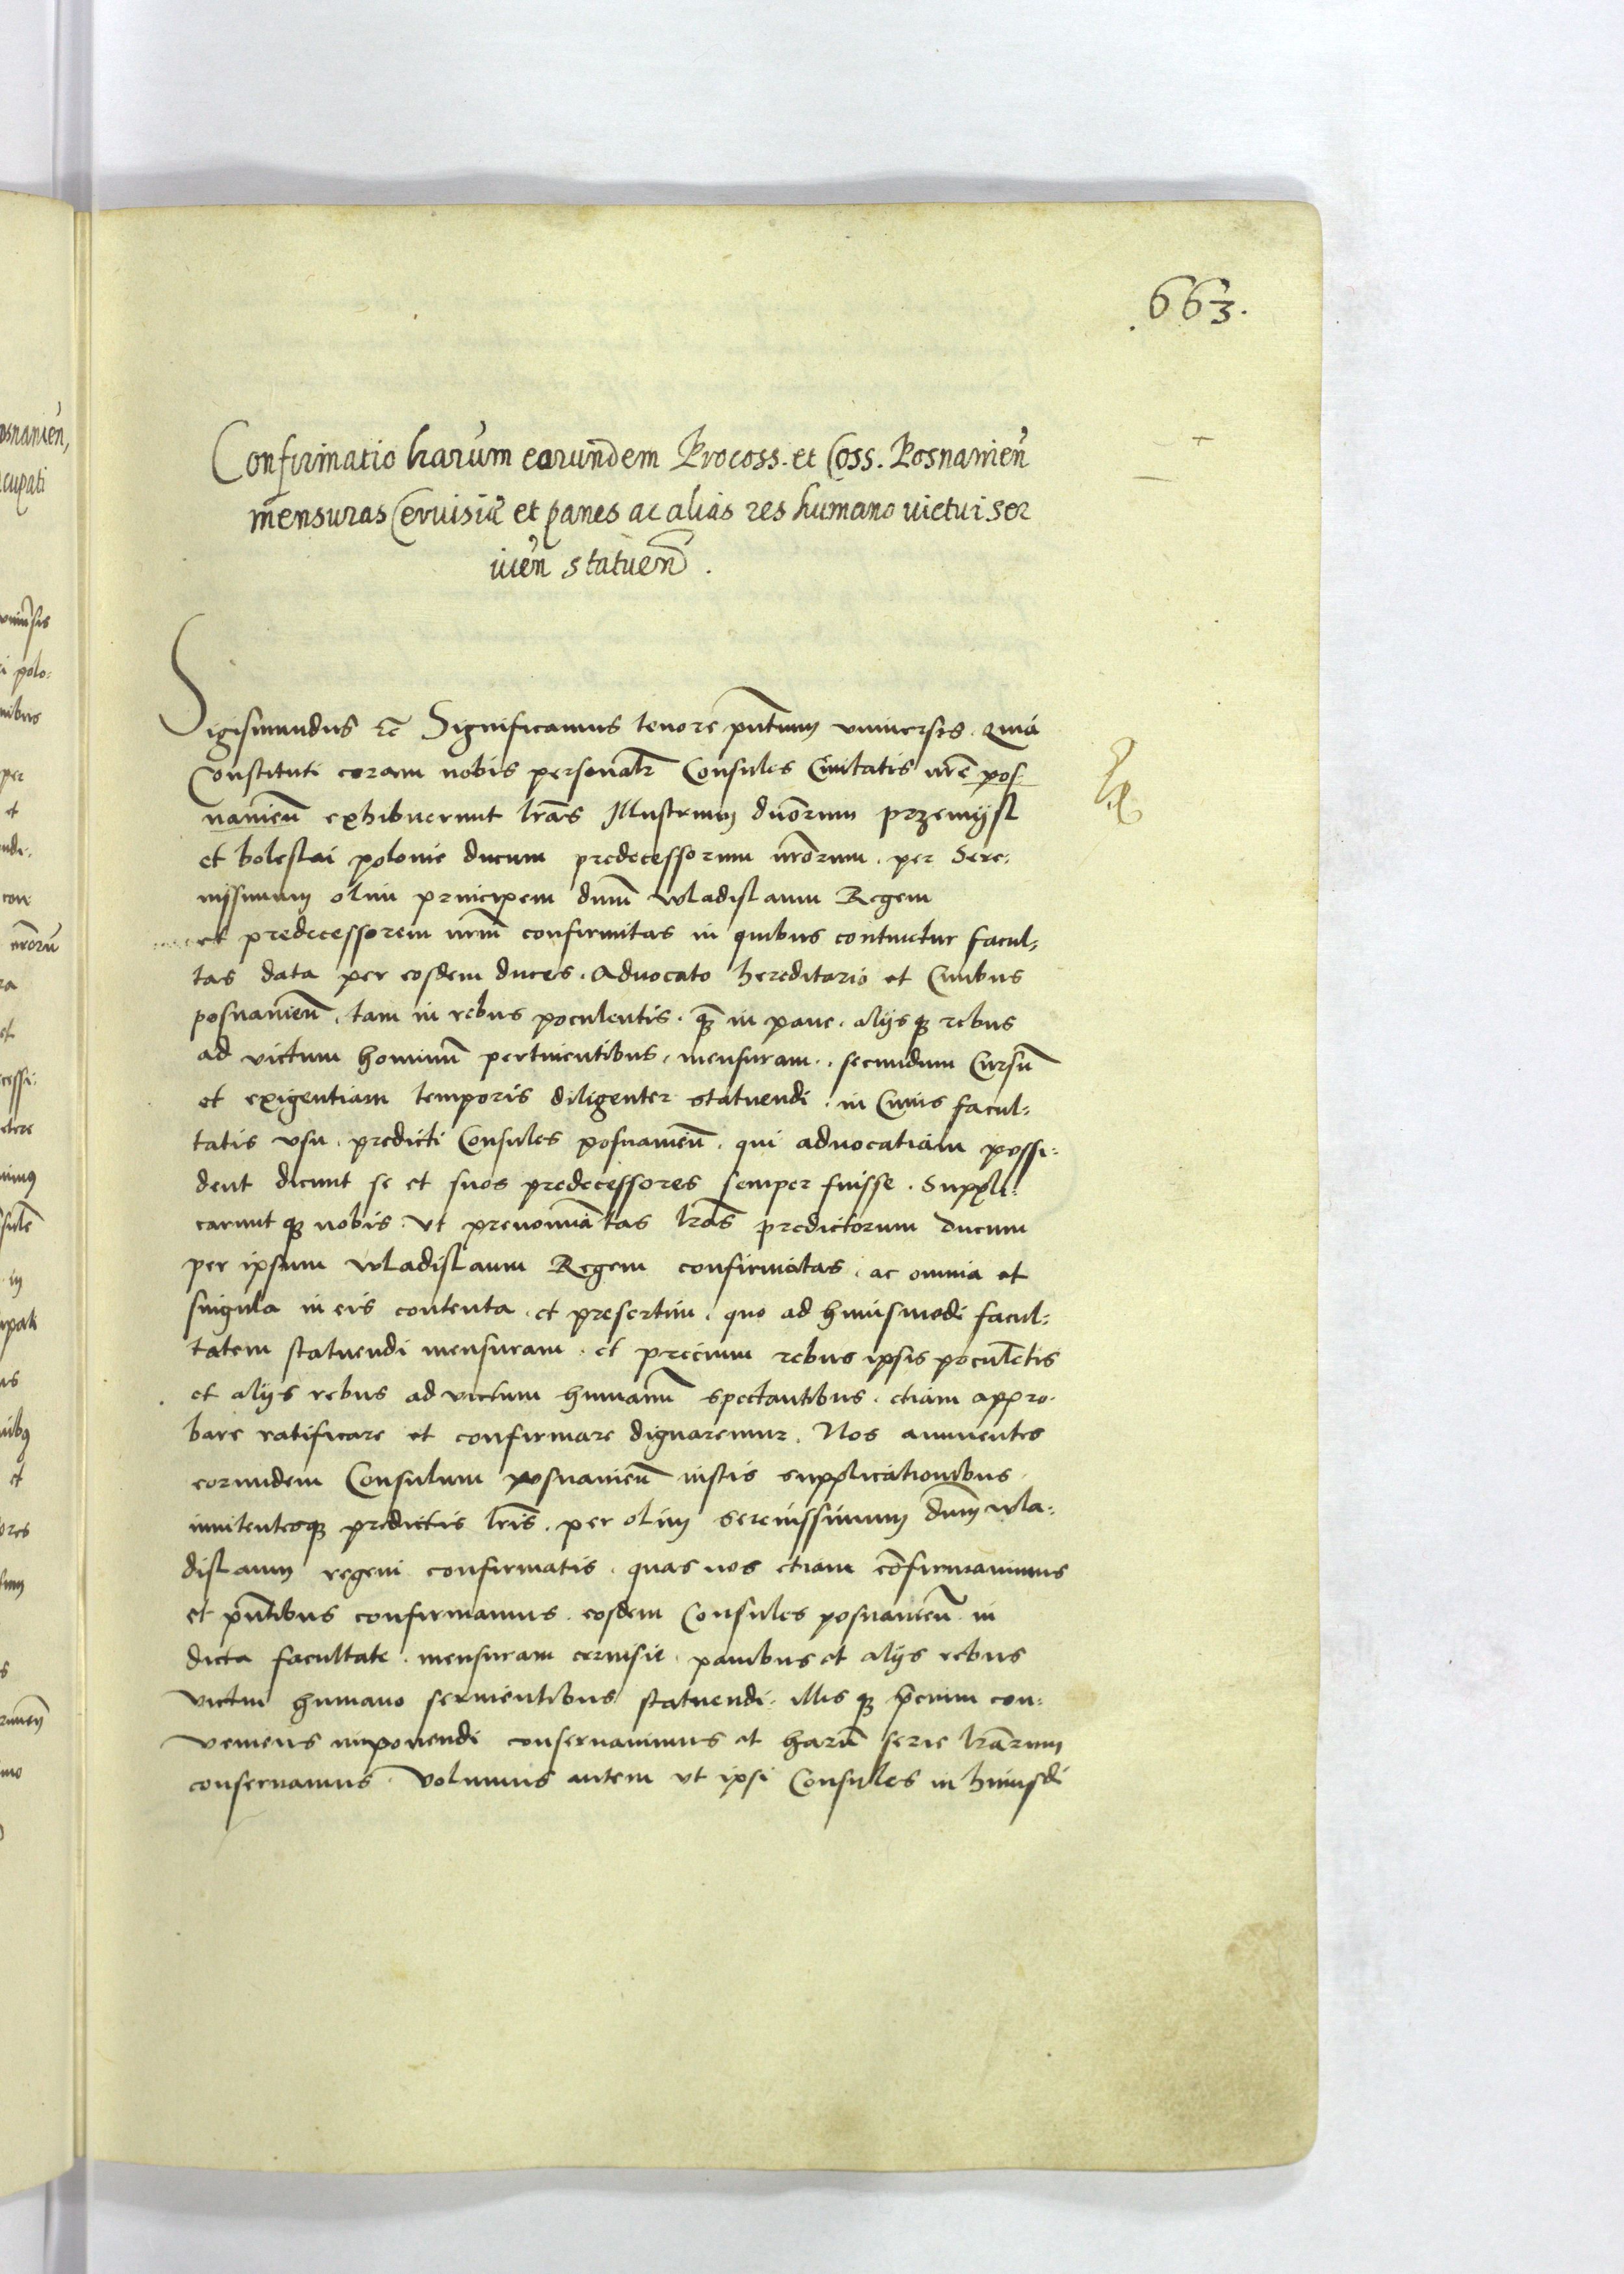 .663.
Confirmatio harum earundem Procoss. et Coss. Posnanien̄
mensuras Cervisiæ et panes ac alias res humano victui ser
vien̄ statuen̄.
Sigismundus etc̄ Significamus tenore pn̄tium vniuersis. Quia
Constituti coram nobis personalr̄ Consules Ciuitatis nrē pos
nanien̄ exhibuerunt lrās Illustrium duorum przemysl
et boleslai polonie ducum predecessorum nrōrum. per Sere:
nissimum olim principem dn̄m wladislaum Regem
et predecessorem nrm̄ confirmitas in quibus continetur facul:
tas data per eosdem duces. Aduocato hereditario et Ciuibus
posnanien̄. tam in rebus poculentis. qȝ in pane. alijsqȝ rebus
ad victum hominum̄ pertinentibus. mensuram. secundum Cursū
et exigentiam temporis diligenter statuendi. in Cuius facul:
tatis vsu. predicti Consules posnanien̄. qui aduocatiam possi:
dent dicunt se et suos predecessores semper fuisse. Suppli:
caruntqȝ nobis. vt prenominatas lrās predictorum ducum
per ipsum wladislaum Regem confirmatas. ac omnia et
singula in eis contenta. et presertim. quo ad huiusmodi facul:
tatem statuendi mensuram. et precium rebus ipsis poculētis
et alijs rebus ad victum humanū spectantibus. etiam appro.
bare ratificare et confirmare dignaremur. Nos annuentes
eorundem Consulum posnanien̄ iustis supplicationibus.
innitentesqȝ predictis lrīs. per olim serenissimum dn̄m wla:
dislaum regem confirmatis. quas nos etiam cōfirmauimus
et pn̄tibus confirmamus. eosdem Consules posnanien̄. in
dicta facultate. mensuram ceruisie. panibus et alijs rebus
victui humano seruientibus statuendi. illisqȝ p̄cium con:
veniens imponendi conseruauimus et harū serie lrārum
conseruamus. Volumus autem vt ipsi Consules in huiusdi